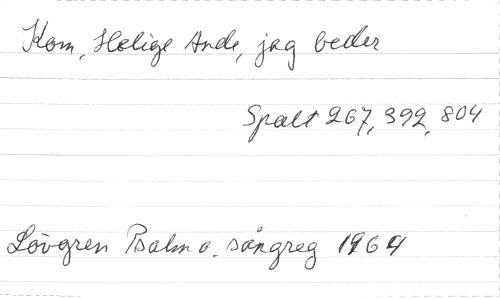 Kom, Helige Ande, jag beder
Spalt 267, 392, 804
Lövgren Psalm o. sångreg 1964